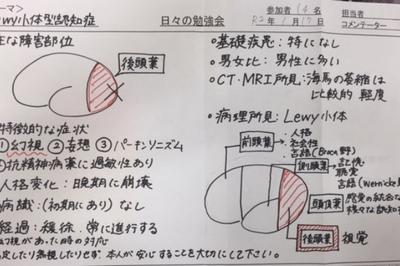 ーマ〉
ewy小体型認知症
日々の勉強会
参加者 14名
R2年1月17日
担当者
コメンテーター
主な障害部位
後頭葉
特徴的な症状
①幻視 ②妄想 ③パーキンソニズム
④抗精神病薬に過敏性あり
人格変化：晩期に崩壊
病識：(初期にあり) なし
経過：緩徐.常に進行する
幻視があった時の対応
定したり無視したりせず、本人が安心することを大切にして下さい。
・基礎疾患：特になし
・男女比：男性に多い
・CT・MRI所見：海馬の萎縮は
比較的 軽度
・病理所見：Lewy小体
前頭葉
・人格
・社会性
・言語(Broca野)
側頭葉
・記憶
・聴覚
・言語(Wernicke
頭頂葉
感覚の統合
様々な認知
後頭葉
視覚